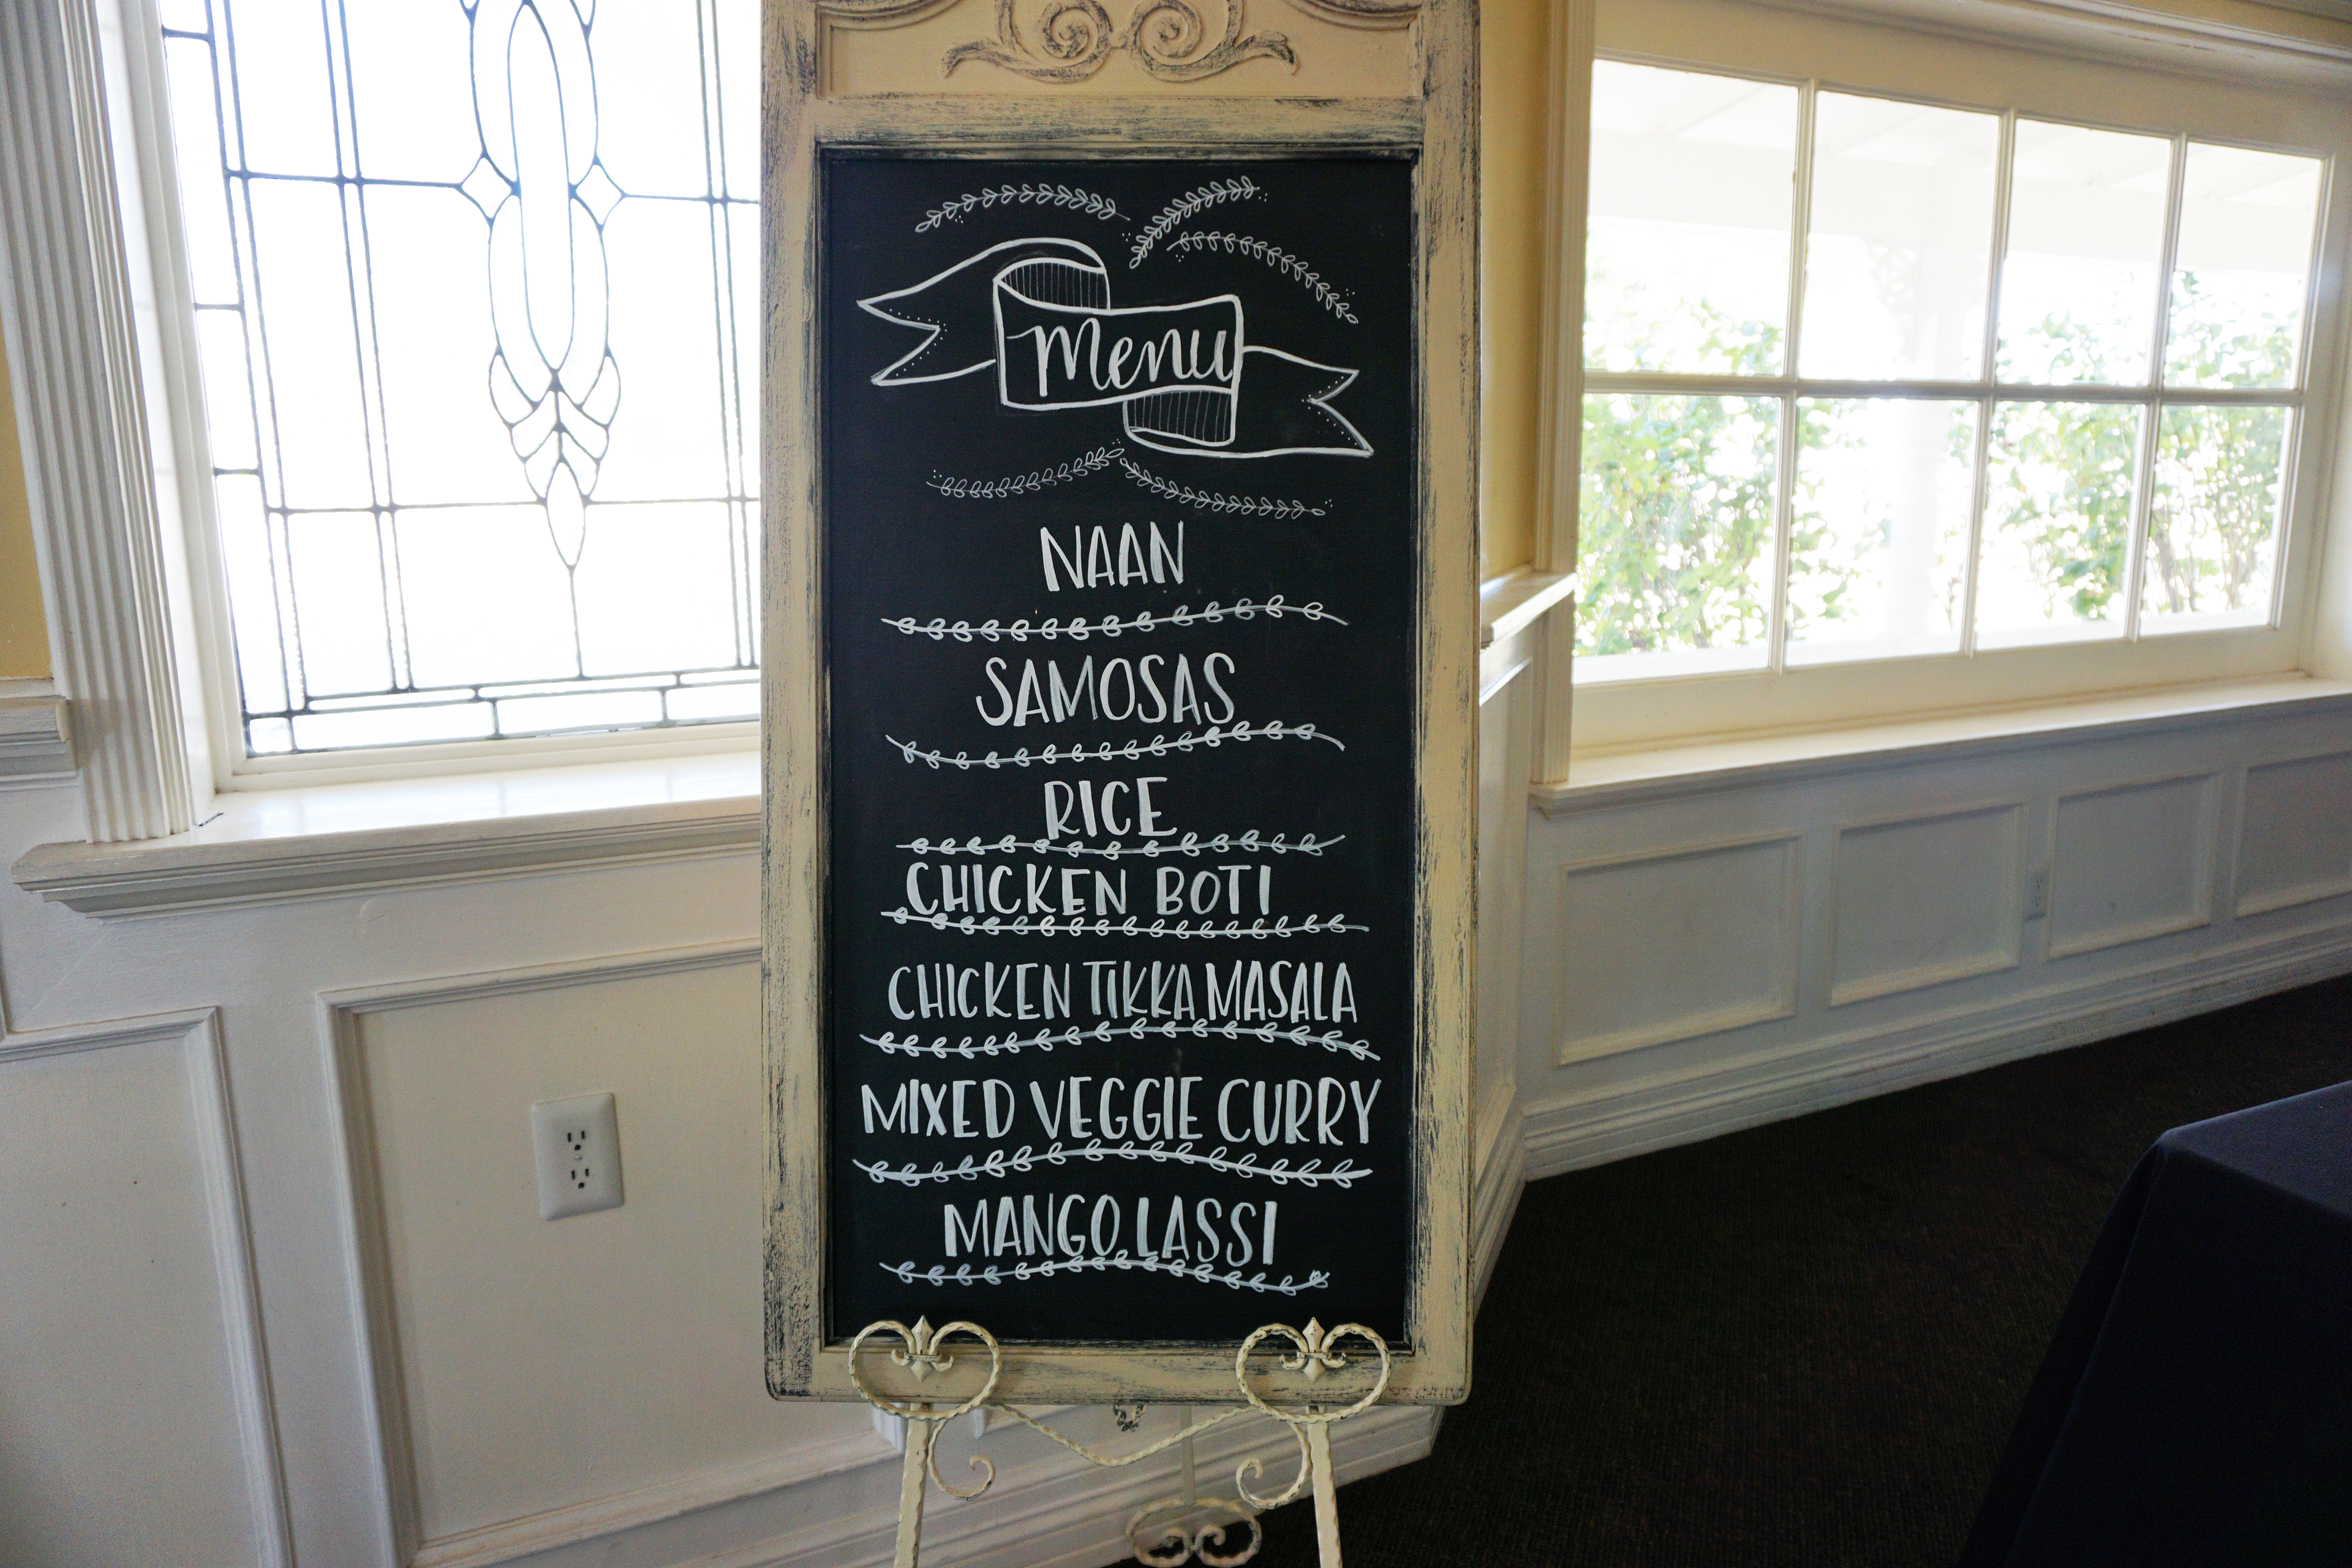 Menu
NAAN
SAMOSAS
RICE
CHICKEN BOTI
CHICKEN TIKKA MASALA
MIXED VEGGIE CURRY
MANGO LASSI